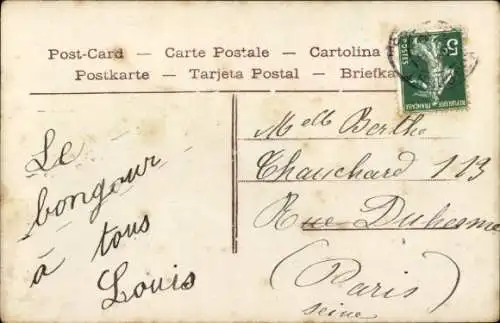 Post-Card — Carte Postale — Cartolina
Postkarte — Tarjeta Postal — Briefka
5c
POSTES
REPUBLIQUE FRANÇAISE
Le
bongour
à tous
Louis
Melle Berthe
Chauchard 113
Rue Duhesme
(Paris)
Seine